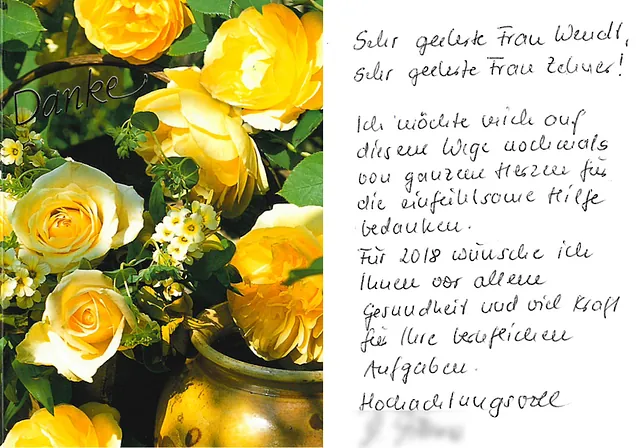 Danke
Sehr geehrte Frau Wendt,
sehr geehrte Frau Zehner!
Ich möchte mich auf
diesem Wege nochmals
von ganzem Herzen für
die einfühlsame Hilfe
bedanken.
Für 2018 wünsche ich
Ihnen vor allem
Gesundheit und viel Kraft
für Ihre beruflichen
Aufgaben.
Hochachtungsvoll